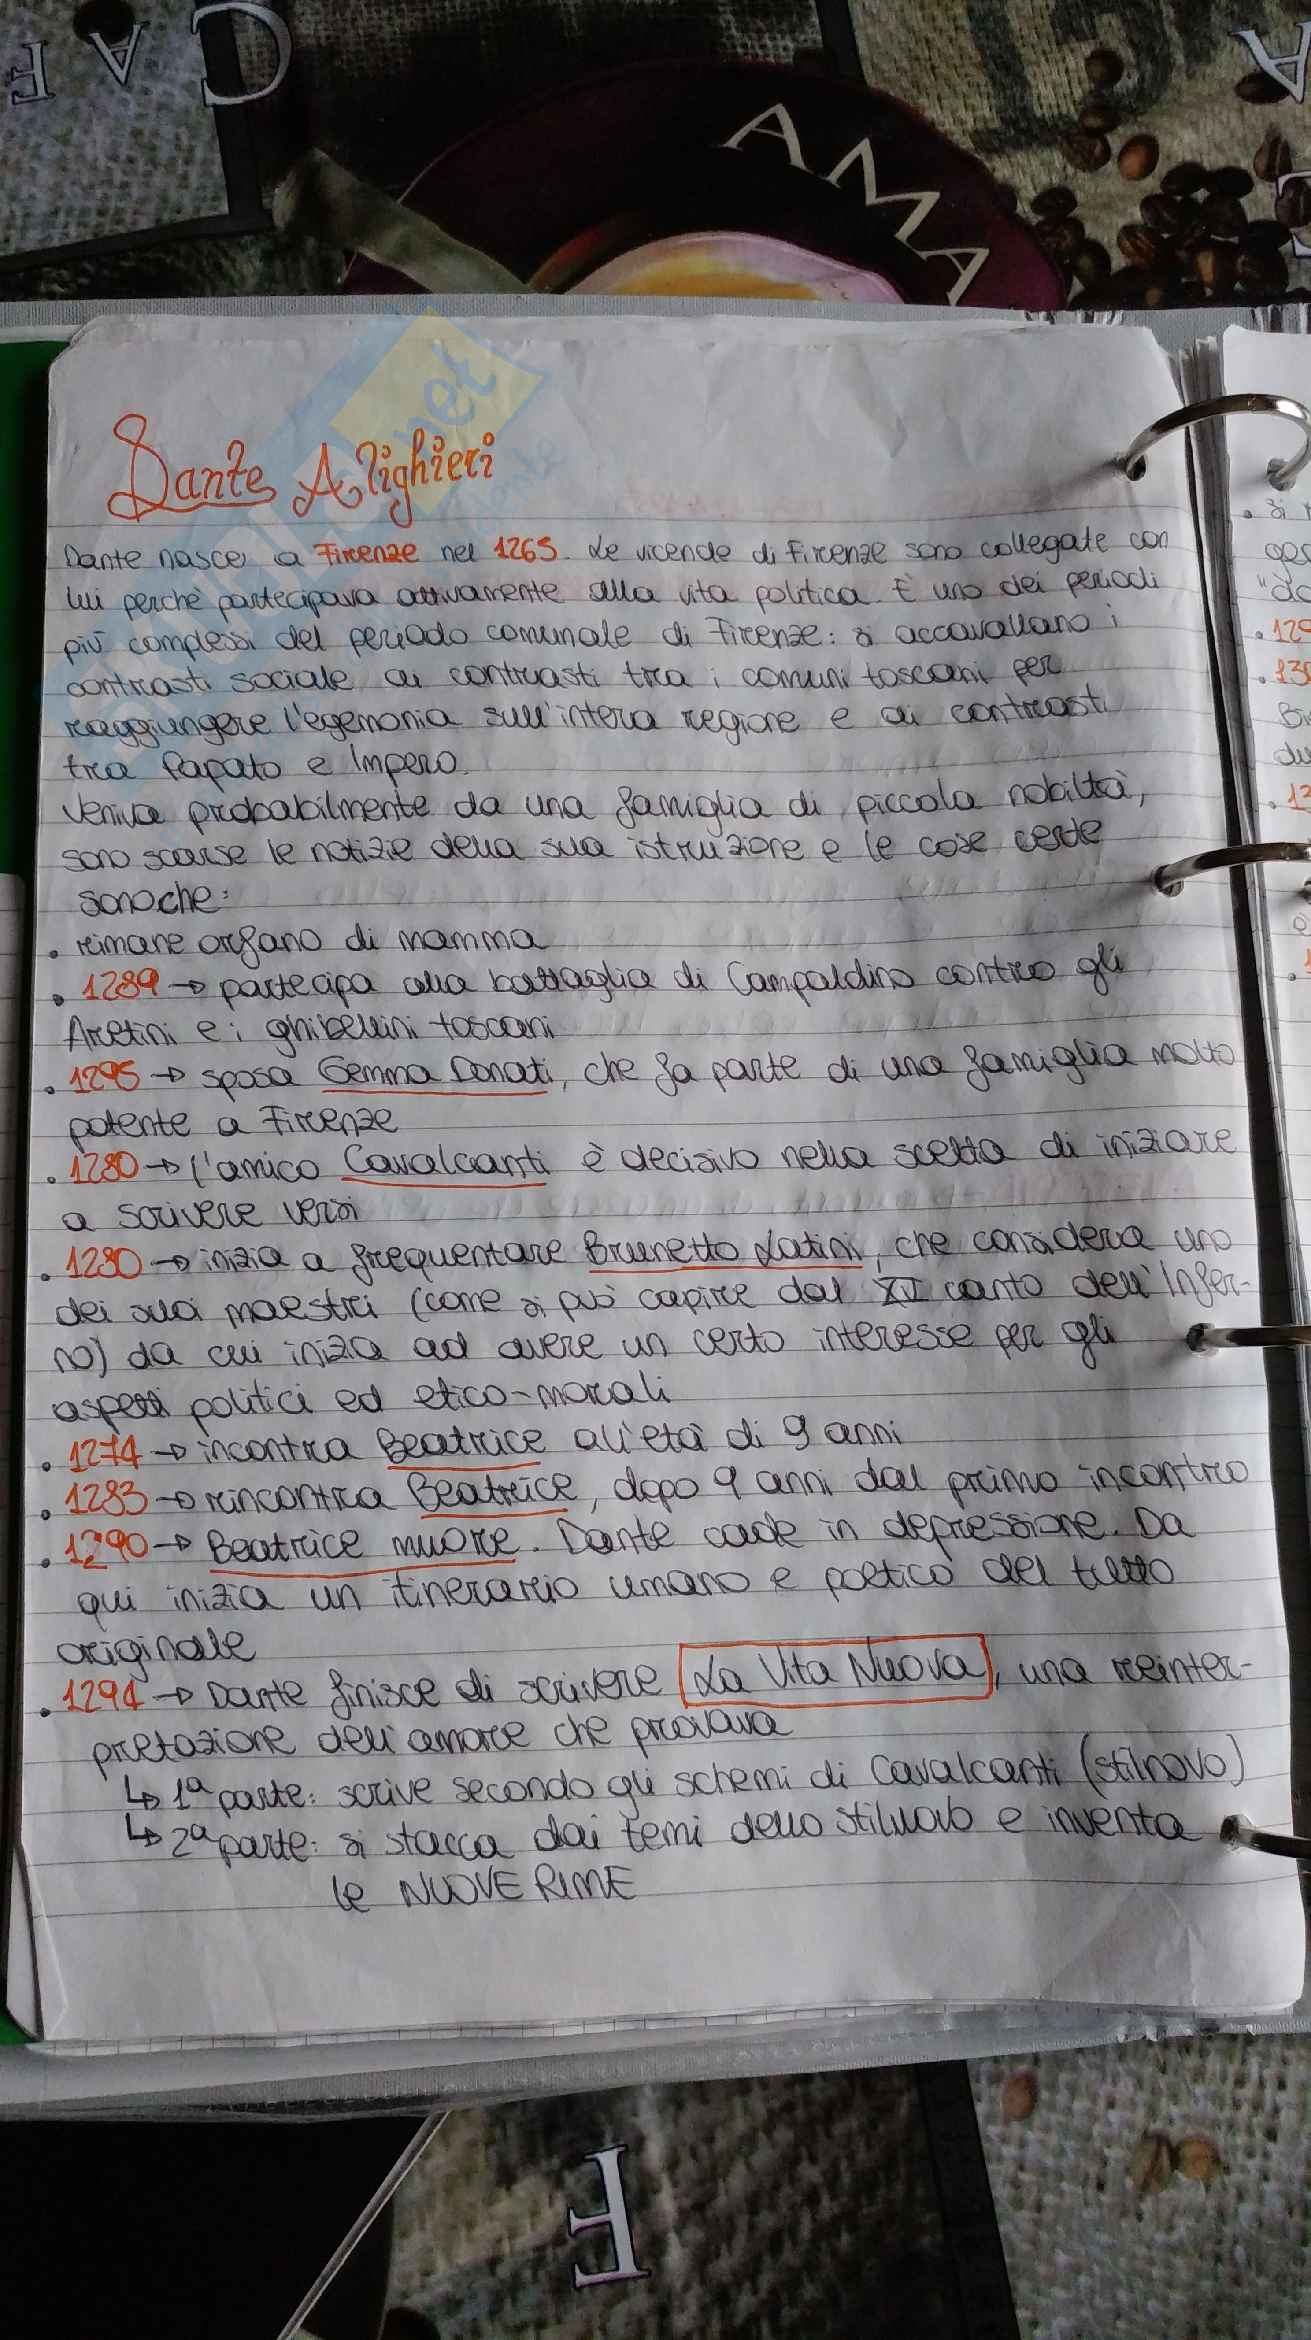 CAF
AMA
A
Dante Alighieri
Dante nasce a Firenze nel 1265. Le vicende di Firenze sono collegate con
lui perchè partecipava attivamente alla vita politica. È uno dei periodi
più complessi del periodo comunale di Firenze: si accavallano i
contrasti sociale ai contrasti tra i comuni toscani per
raggiungere l'egemonia sull'intera regione e ai contrasti
tra Papato e Impero.
Veniva probabilmente da una famiglia di piccola nobiltà,
sono scarse le notizie della sua istruzione e le cose certe
sono che:
• rimane orfano di mamma
• 1289 → partecipa alla battaglia di Campaldino contro gli
Aretini e i ghibellini toscani
• 1295 → sposa Gemma Donati, che fa parte di una famiglia molto
potente a Firenze
• 1280 → l'amico Cavalcanti è decisivo nella scelta di iniziare
a scrivere versi
• 1280 → inizia a frequentare Brunetto Latini, che considera uno
dei suoi maestri (come si può capire dal XV canto dell'Infer-
no) da cui inizia ad avere un certo interesse per gli
aspetti politici ed etico-morali
• 1274 → incontra Beatrice all'età di 9 anni
• 1283 → rincontra Beatrice, dopo 9 anni dal primo incontro
• 1290 → Beatrice muore. Dante cade in depressione. Da
qui inizia un itinerario umano e poetico del tutto
originale
• 1294 → Dante finisce di scrivere La Vita Nuova, una reinter-
pretazione dell'amore che provava
↳ 1ª parte: scrive secondo gli schemi di Cavalcanti (stilnovo)
↳ 2ª parte: si stacca dai temi dello stilnovo e inventa
le NUOVE RIME
F